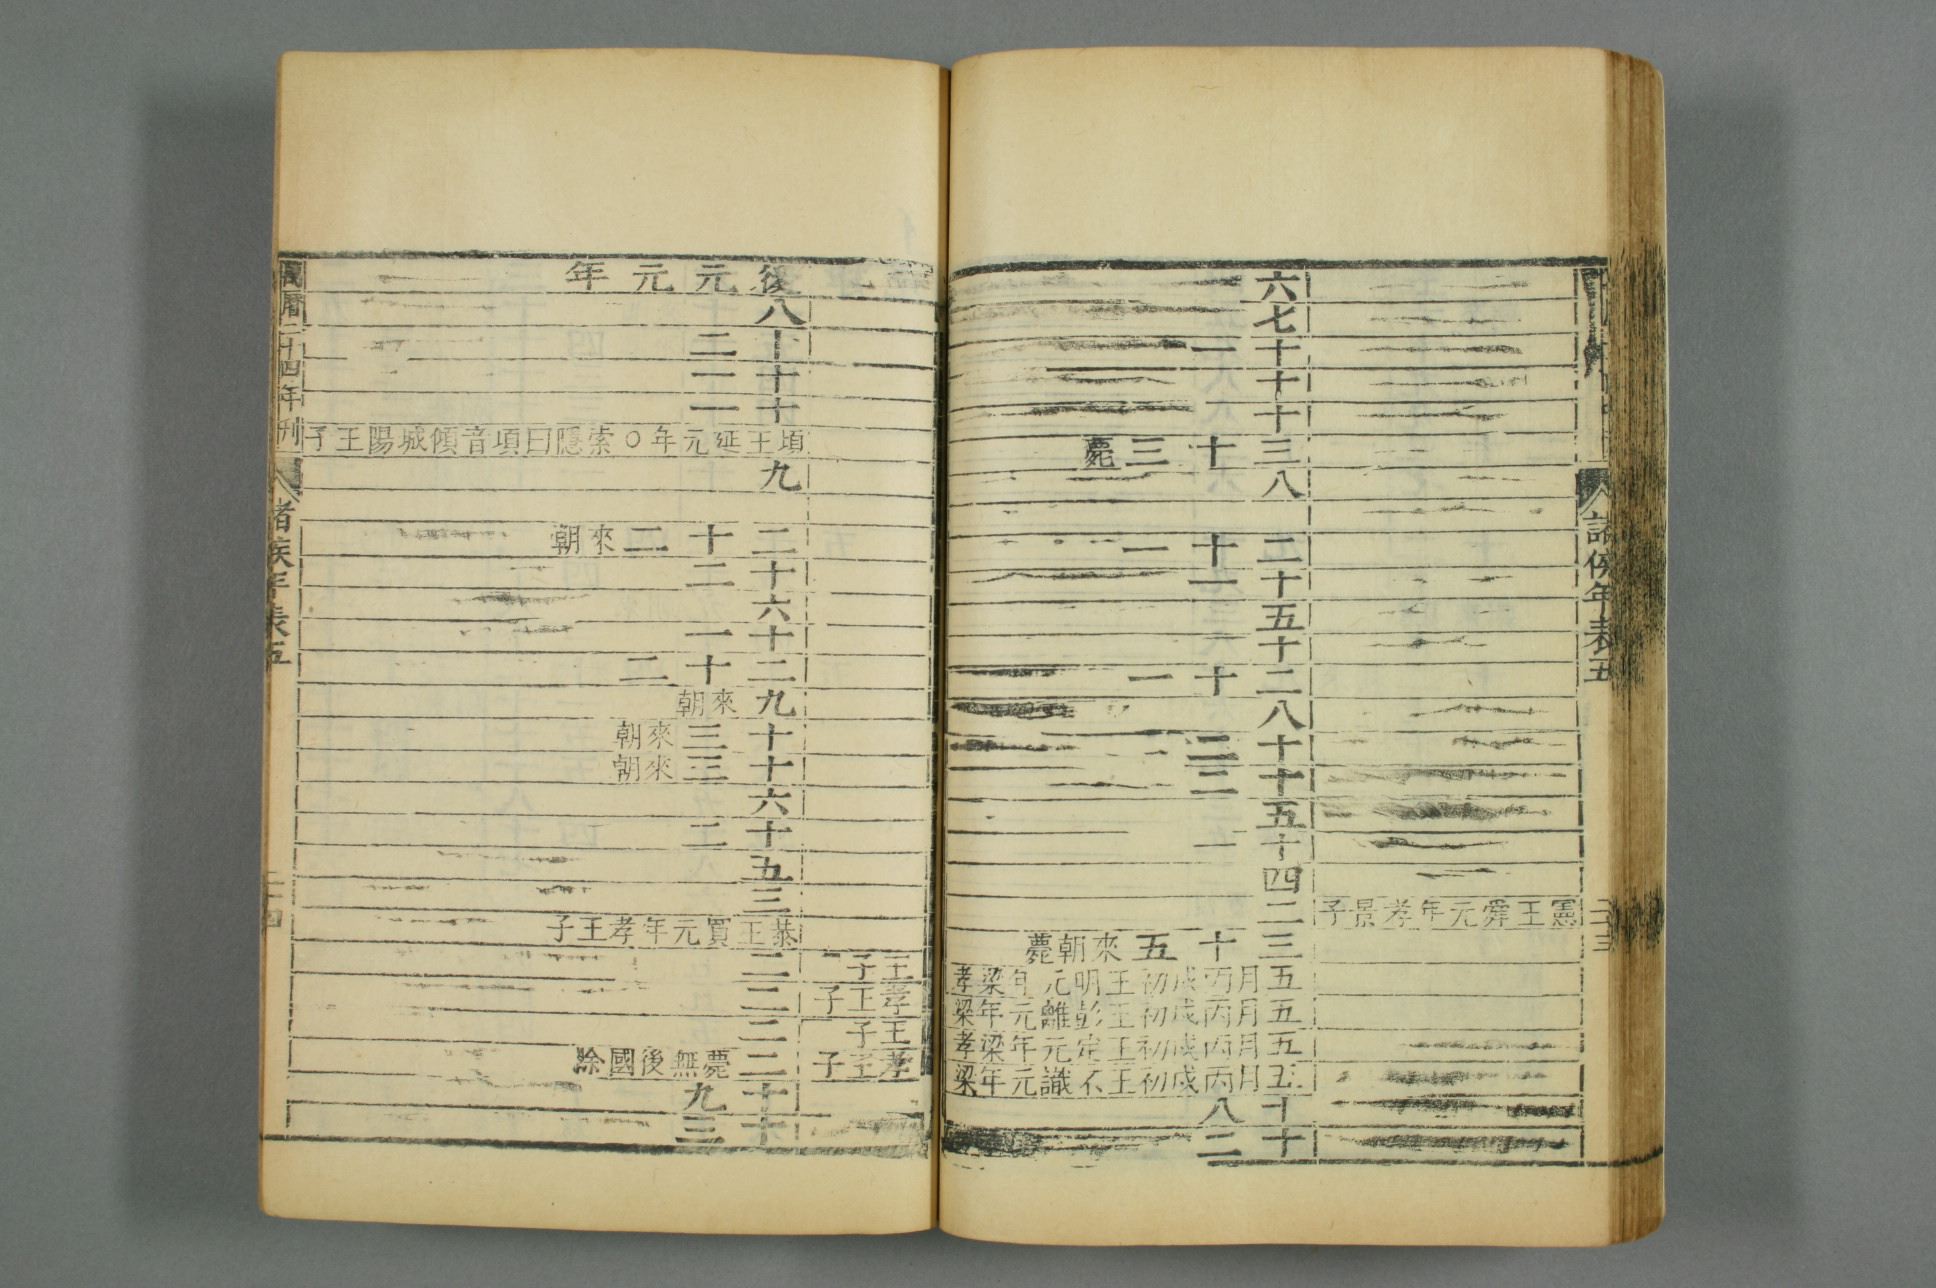 諸侯年表五
二十三
憲王舜元年孝景子
六
七
十一
十
十
三十三薨
八
二十一
十一
五
十
二十一
八
十二
十二
五
十一
四
二
三十五來朝薨
五月丙戌初王明元年梁孝
五月丙戌初王彭離元年梁
五月丙戌初王定元年梁孝
五月丙戌初王不識元年梁
十八
十二
王子
孝王子
王子
孝王子
後元元年
八
十二
十二
十一
頃王延元年○索隱曰項音傾城陽王子
九
二十二來朝
十二
六
十一
二十二
九來朝
十三來朝
十三來朝
六
十二
五
三
恭王買元年孝王子
二
二
二
二薨無後國除
十九
十三
萬曆二十四年刊
諸侯年表五
二十四